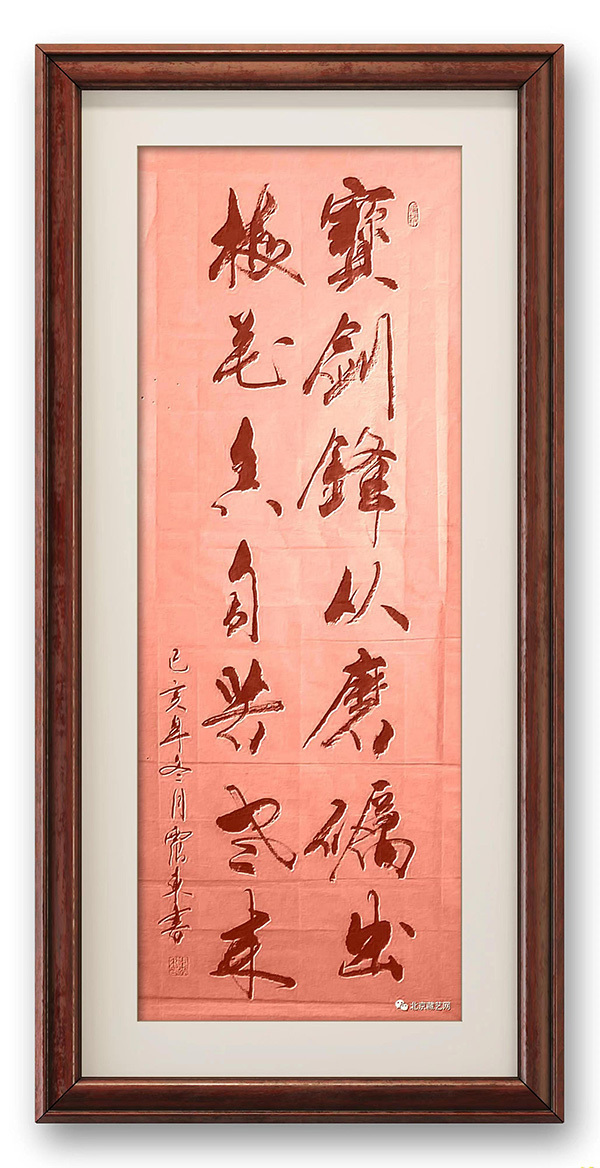 寶劍鋒从磨礪出
梅花香自苦寒来
己亥年冬月
北京藏艺网